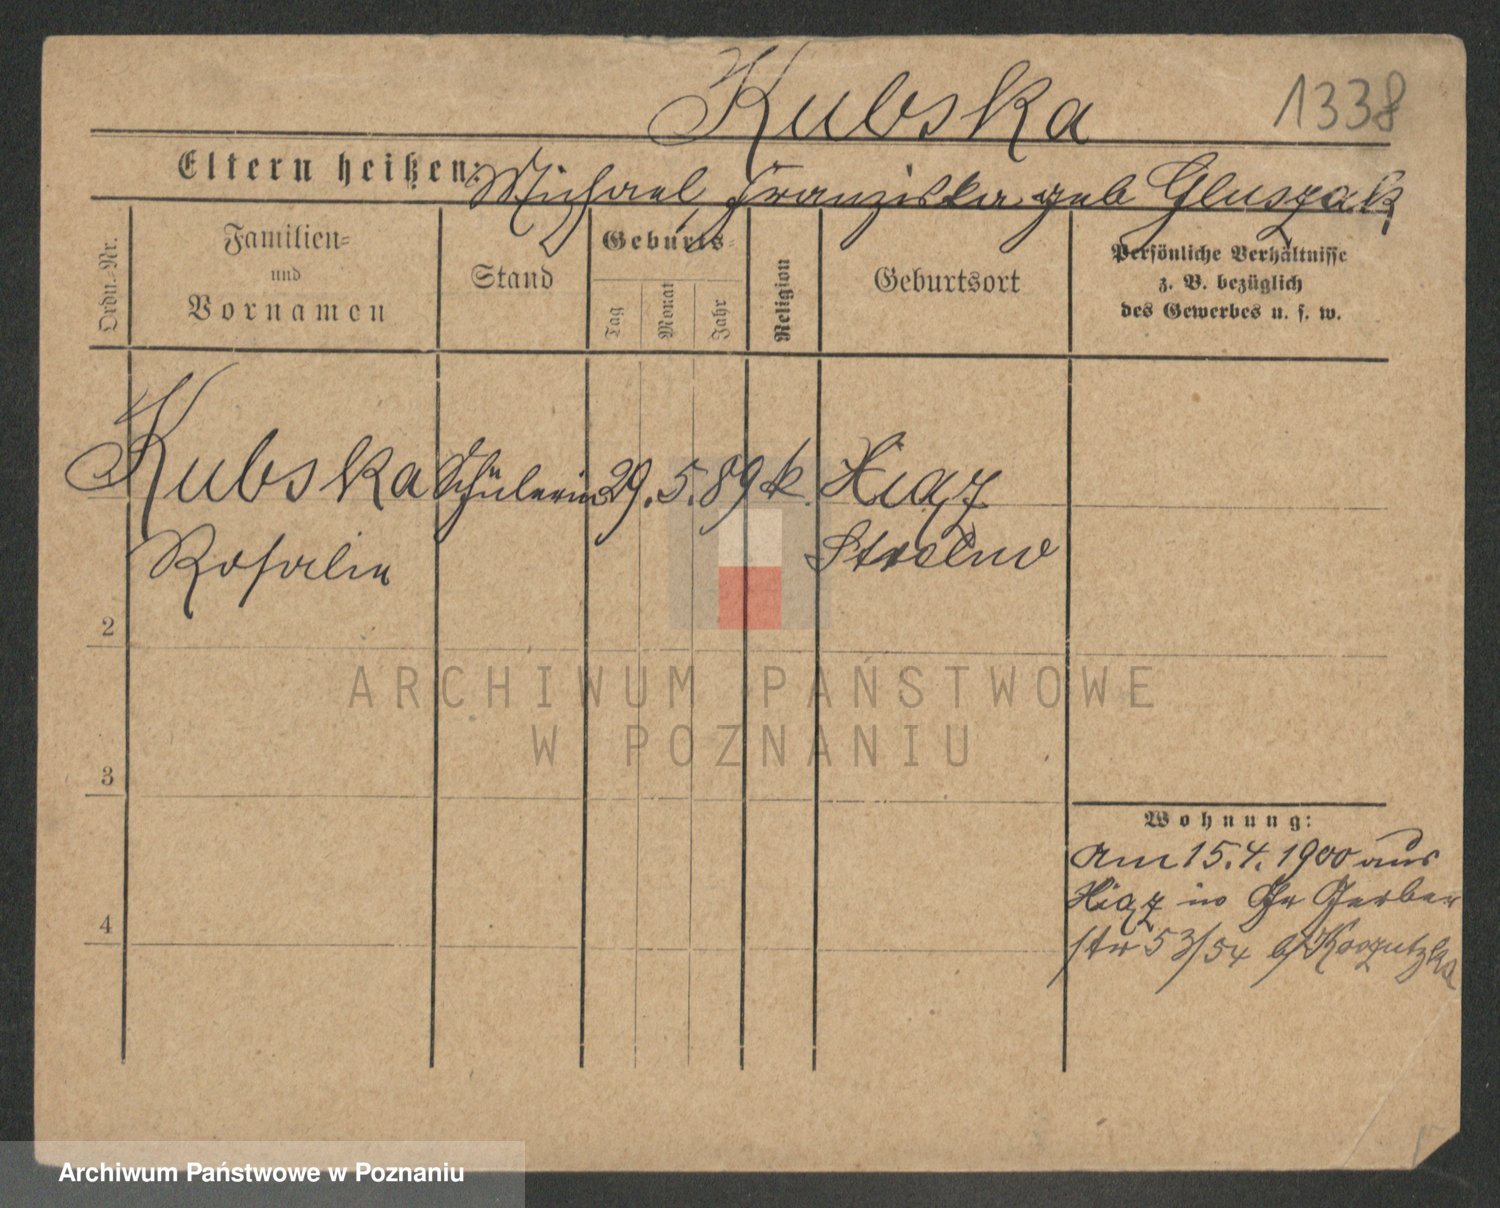 Kubska
1338
Eltern heißen: Michael, Franziska geb Gluszak
Ordn.-Nr.
Familien-
und
Vornamen
Stand
Geburts-
Tag
Monat
Jahr
Religion
Geburtsort
Persönliche Verhältnisse
z. B. bezüglich
des Gewerbes u. s. w.
Kubska Schülerin 29. 5. 89 k.
Rosalie Strelno
2
ARCHIWUM PAŃSTWOWE
W POZNANIU
3
4
Wohnung:
am 15.4.1900 aus
in Gerber
str 53/54 b/
Archiwum Państwowe w Poznaniu